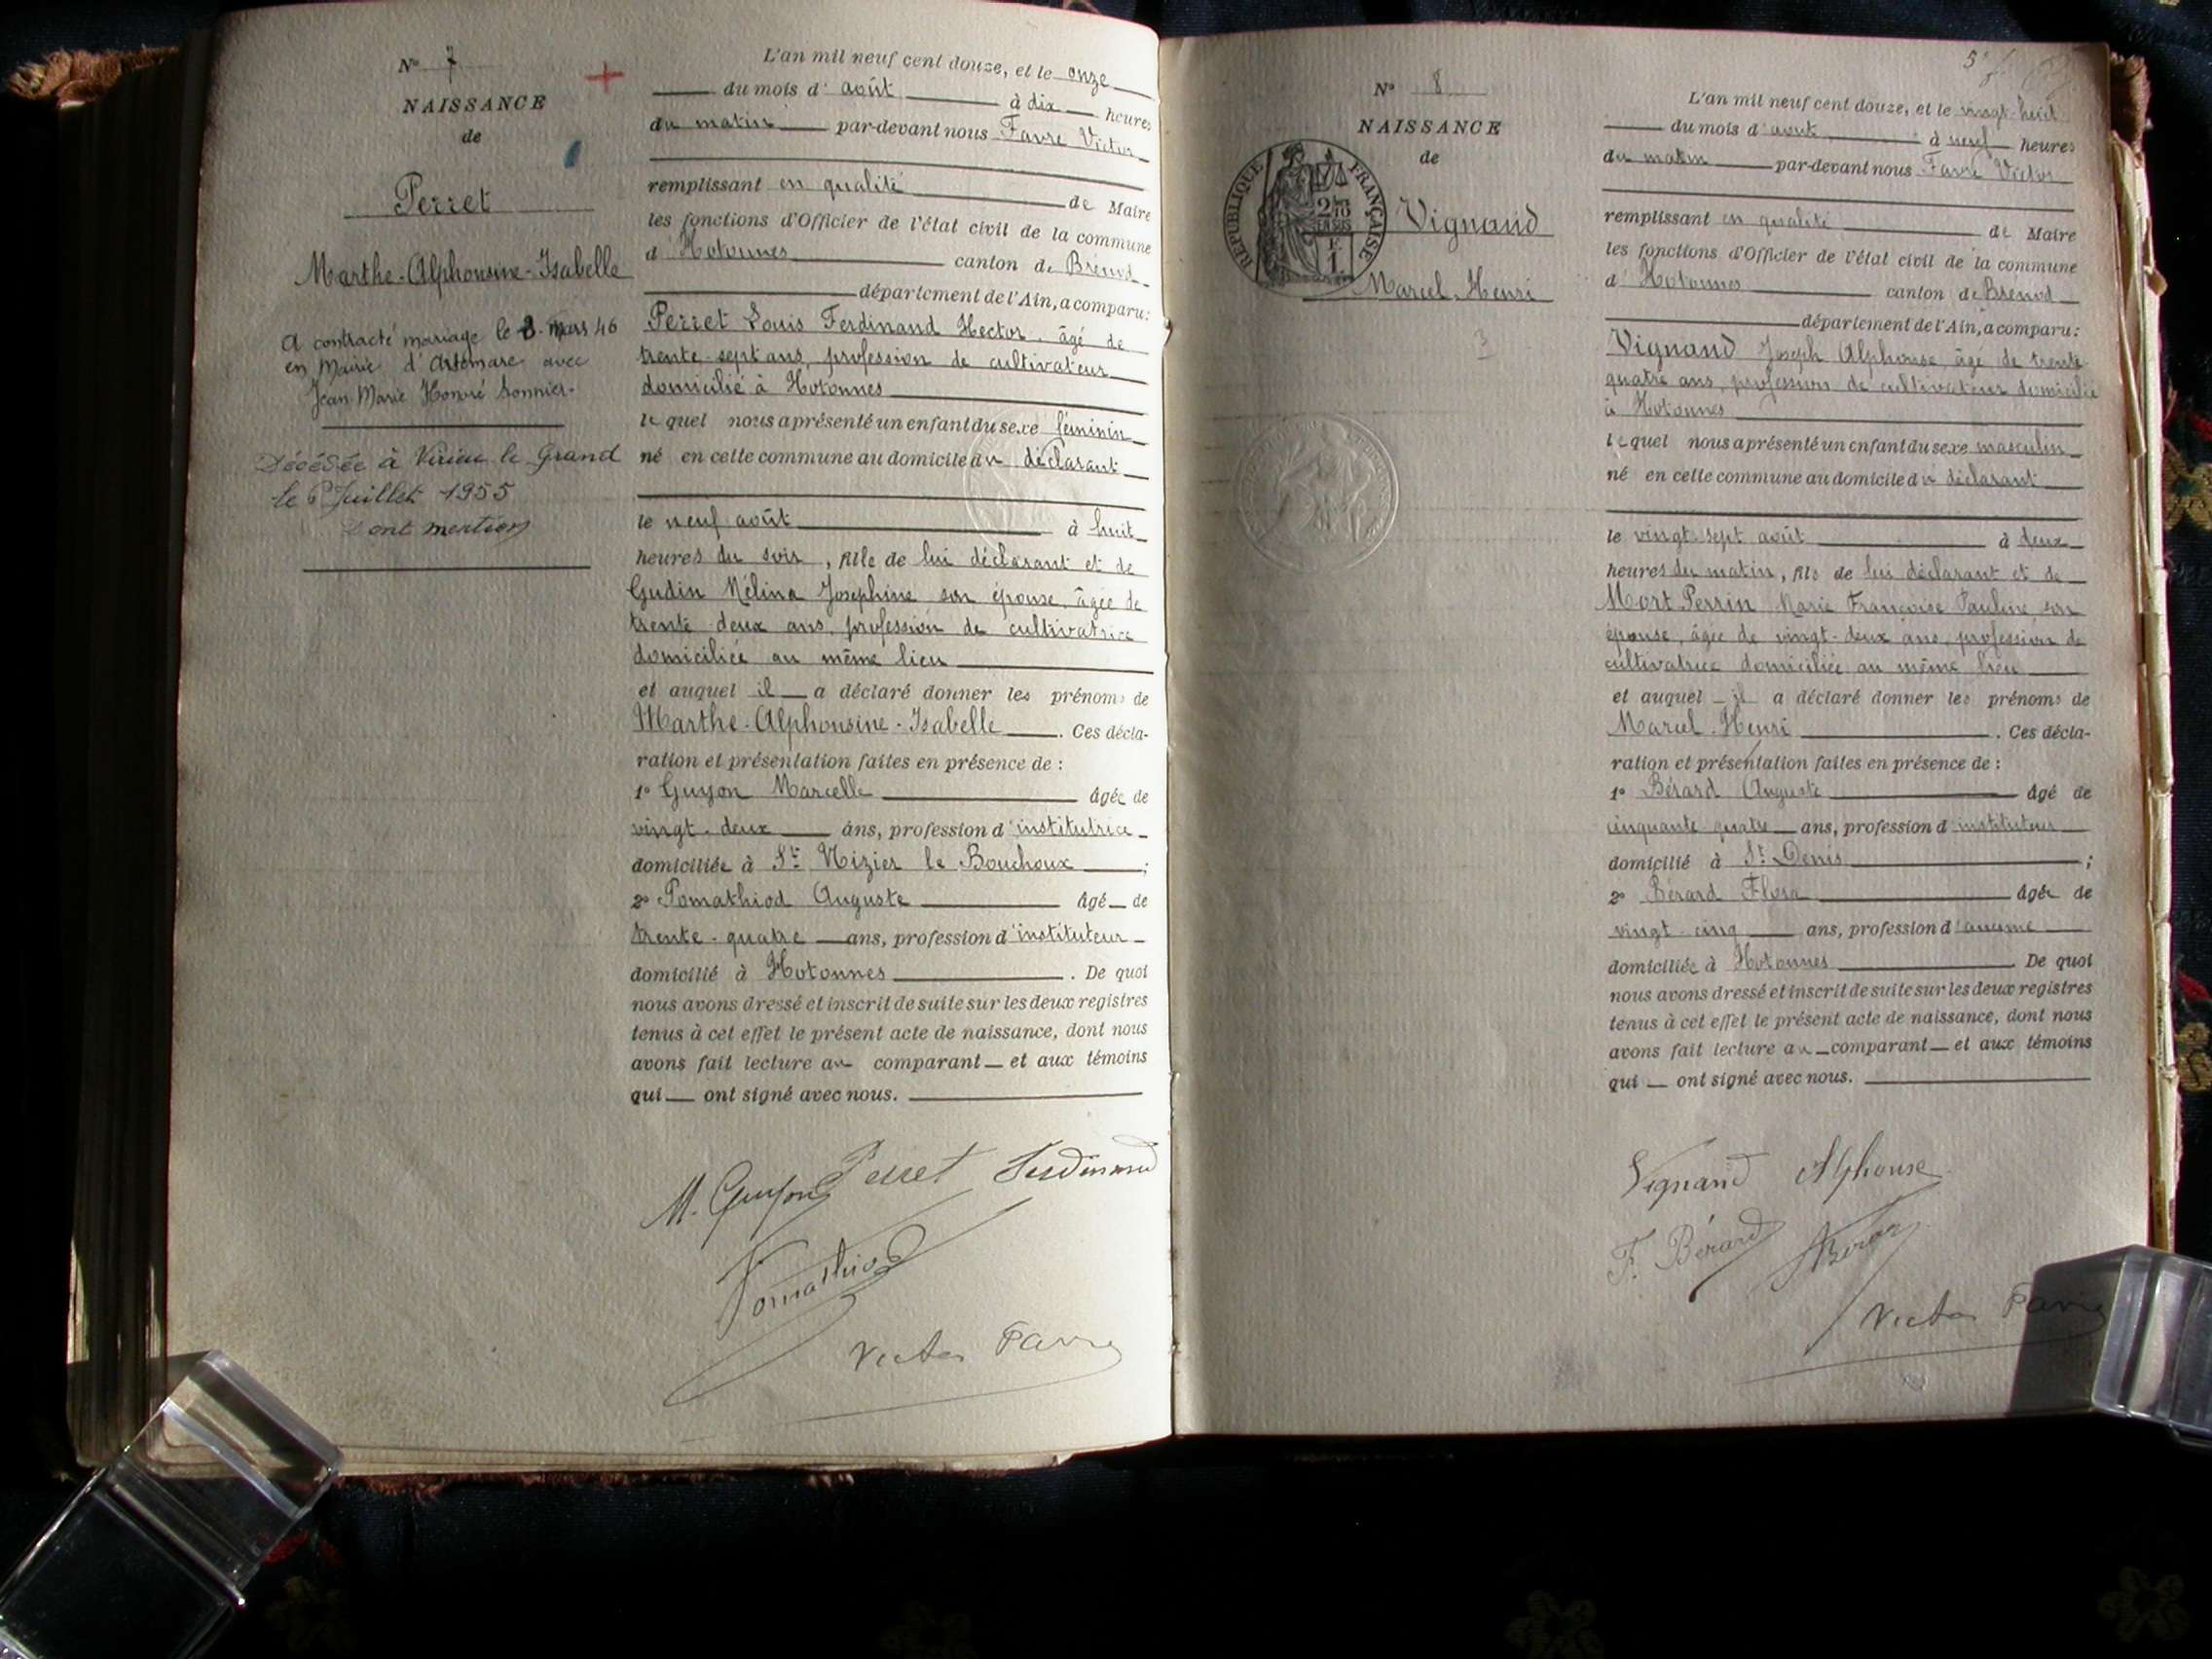 N° 7
NAISSANCE
de
Perret
Marthe-Alphonsine-Isabelle
A contracté mariage le 8 Mars 46
en Mairie d'Artemare avec
Jean Marie Honoré Sonnier.
Décédée à Virieu le Grand
le 6 Juillet 1955
Dont mention
L'an mil neuf cent douze, et le onze
du mois d'août à dix heures
du matin par-devant nous Favre Victor
remplissant en qualité de Maire
les fonctions d'Officier de l'état civil de la commune
d'Hotonnes canton de Brénod
département de l'Ain, a comparu:
Perret Louis Ferdinand Hector, âgé de
trente-sept ans, profession de cultivateur
domicilié à Hotonnes
lequel nous a présenté un enfant du sexe féminin
né en cette commune au domicile du déclarant
le neuf août à huit
heures du soir, fille de lui déclarant et de
Gudin Mélina Josephine son épouse, âgée de
trente-deux ans, profession de cultivatrice
domiciliée au même lieu
et auquel il a déclaré donner les prénoms de
Marthe-Alphonsine-Isabelle. Ces décla-
ration et présentation faites en présence de :
1° Guyon Marcelle âgée de
vingt-deux ans, profession d'institutrice
domiciliée à St Nizier le Bouchoux ;
2° Pomathiod Auguste âgé de
trente-quatre ans, profession d'instituteur
domicilié à Hotonnes. De quoi
nous avons dressé et inscrit de suite sur les deux registres
tenus à cet effet le présent acte de naissance, dont nous
avons fait lecture au comparant et aux témoins
qui ont signé avec nous.
M. Guyon Perret Ferdinand
Pomathiod
Victor Favre
N° 8
NAISSANCE
de
RÉPUBLIQUE FRANÇAISE
Vignand
Marcel-Henri
3
L'an mil neuf cent douze, et le vingt-huit
du mois d'août à neuf heures
du matin par-devant nous Favre Victor
remplissant en qualité de Maire
les fonctions d'Officier de l'état civil de la commune
d'Hotonnes canton de Brénod
département de l'Ain, a comparu:
Vignand Joseph Alphonse, âgé de trente
quatre ans, profession de cultivateur domicilié
à Hotonnes
lequel nous a présenté un enfant du sexe masculin
né en cette commune au domicile du déclarant
le vingt-sept août à deux
heures du matin, fils de lui déclarant et de
Mort Perrin Marie Françoise Pauline son
épouse, âgée de vingt-deux ans, profession de
cultivatrice domiciliée au même lieu
et auquel il a déclaré donner les prénoms de
Marcel-Henri. Ces décla-
ration et présentation faites en présence de :
1° Bérard Auguste âgé de
cinquante quatre ans, profession d'instituteur
domicilié à St Denis ;
2° Bérard Flora âgée de
vingt-cinq ans, profession d'aucune
domiciliée à Hotonnes De quoi
nous avons dressé et inscrit de suite sur les deux registres
tenus à cet effet le présent acte de naissance, dont nous
avons fait lecture au comparant et aux témoins
qui ont signé avec nous.
Vignand Alphonse
F. Bérard ABérard
Victor Favre